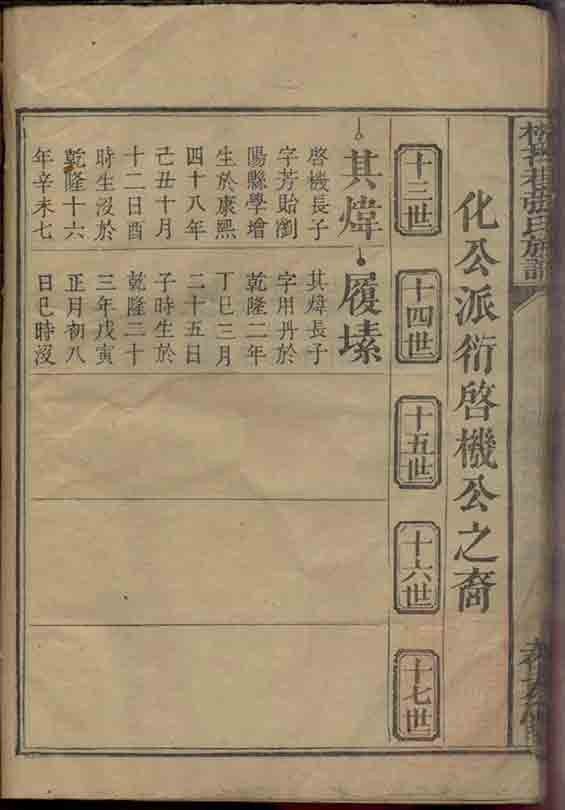 張氏族譜
化公派衍啓機公之裔
十三世
十四世
十五世
十六世
十七世
其煒
啓機長子
字芳貽瀏
陽縣學增
生於康熙
四十八年
己丑十月
十二日酉
時生沒於
乾隆十六
年辛未七
履壉
其煒長子
字用丹於
乾隆二年
丁巳三月
二十五日
子時生於
乾隆二十
三年戊寅
正月初八
日巳時沒